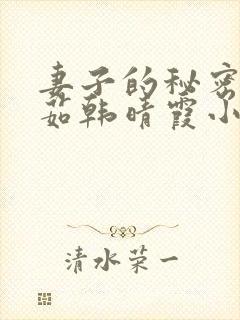 妻子的秘密
茹韩晴霞小
清水荣一